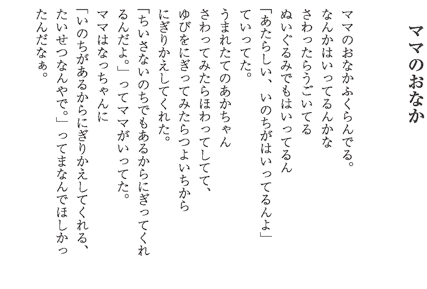 ママのおなか
ママのおなかふくらんでる。
なんかはいってるんかな
さわったらうごいてる
ぬいぐるみでもはいってるん
「あたらしい、いのちがはいってるんよ」
ていってた。
うまれたてのあかちゃん
さわってみたらほわってしてて、
ゆびをにぎってみたらつよいちから
にぎりかえしてくれた。
「ちいさないのちでもあるからにぎってくれ
るんだよ。」ってママがいってた。
ママはなっちゃんに
「いのちがあるからにぎりかえしてくれる、
たいせつなんやで。」ってまなんでほしかっ
たんだなぁ。